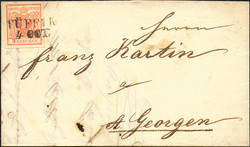 TÜFFER
4 OCT.
Herrn
Franz Kartin
a
St. Georgen